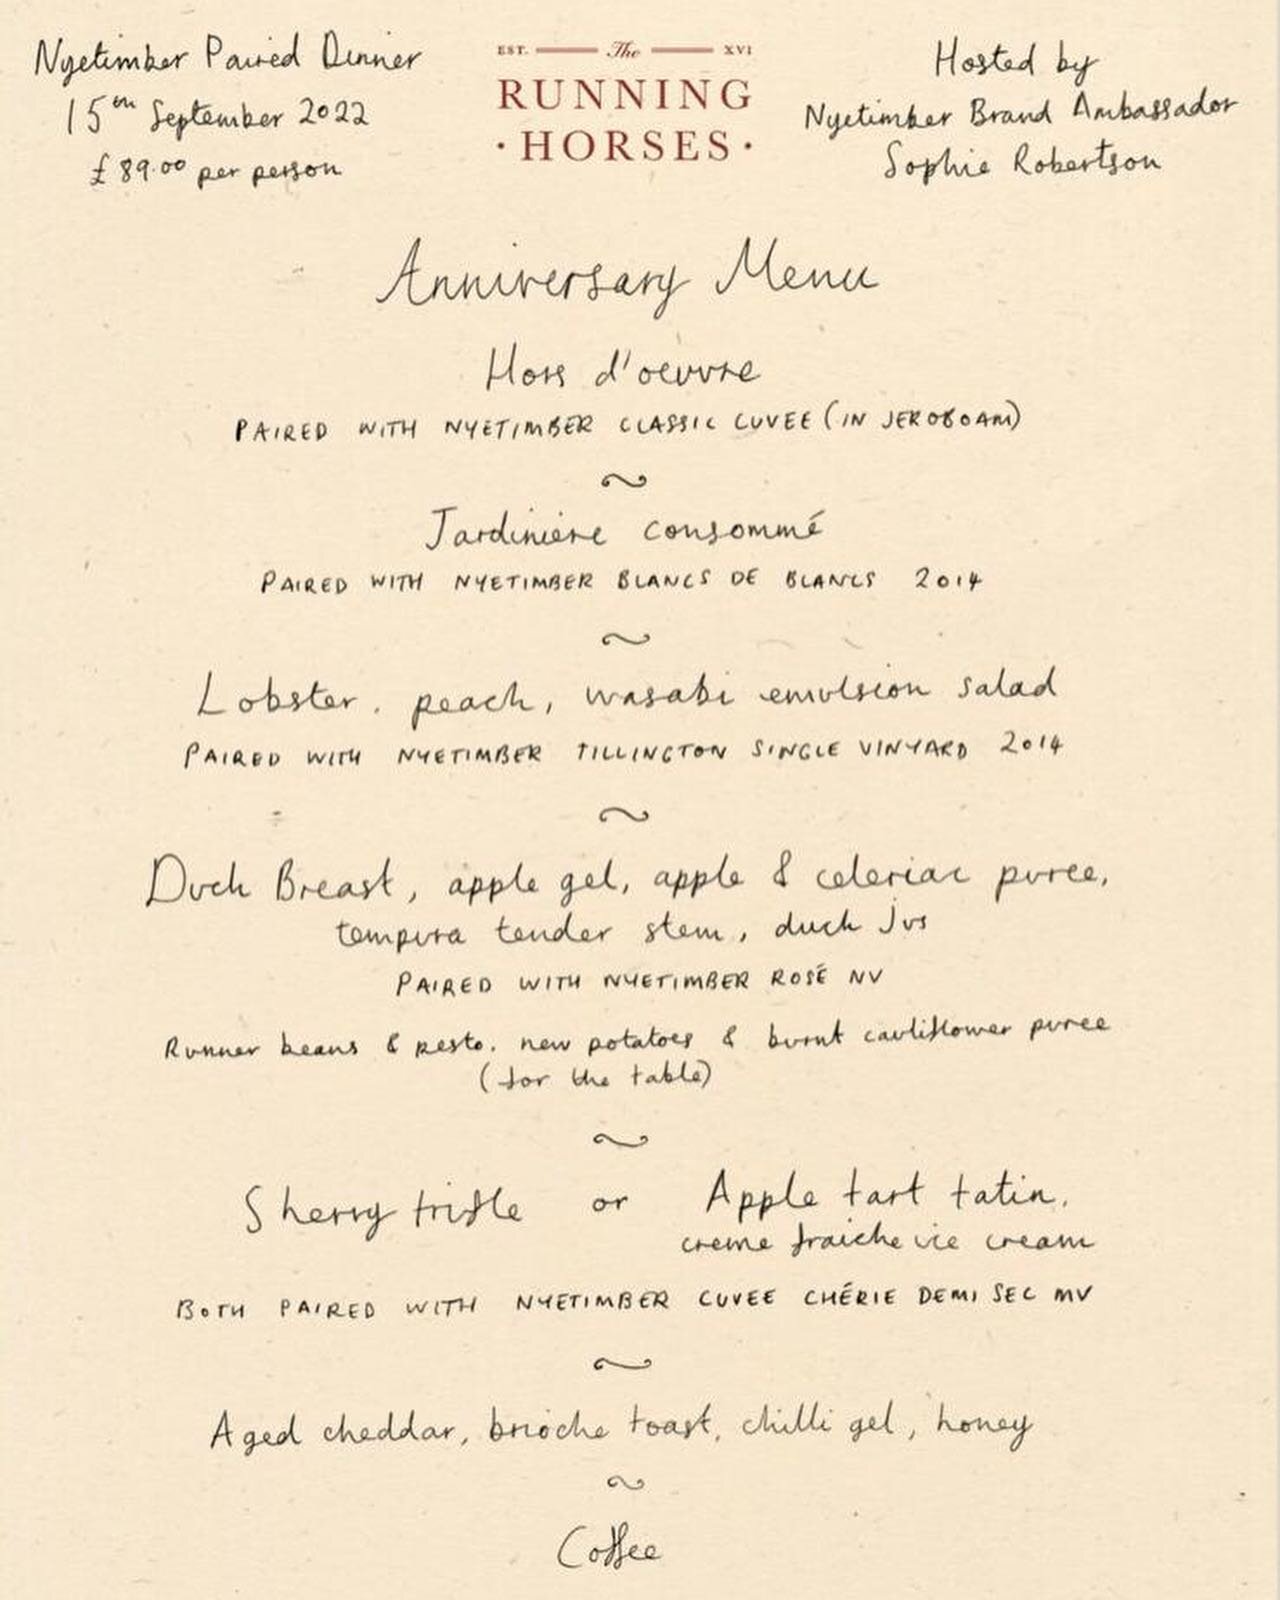 Nyetimber Paired Dinner
15th September 2022
£89.00 per person
EST. The XVI
RUNNING
· HORSES ·
Hosted by
Nyetimber Brand Ambassador
Sophie Robertson
Anniversary Menu
Hors d'oeuvre
PAIRED WITH NYETIMBER CLASSIC CUVEE (IN JEROBOAM)
~
Jardiniere consommé
PAIRED WITH NYETIMBER BLANCS DE BLANCS 2014
~
Lobster. peach, wasabi emulsion salad
PAIRED WITH NYETIMBER TILLINGTON SINGLE VINYARD 2014
~
Duck Breast, apple gel, apple & celeriac puree,
tempura tender stem, duck Jus
PAIRED WITH NYETIMBER ROSÉ NV
Runner beans & pesto. new potatoes & burnt cauliflower puree
(for the table)
~
Sherry trifle or Apple tart tatin.
creme fraiche ice cream
BOTH PAIRED WITH NYETIMBER CUVEE CHÉRIE DEMI SEC MV
~
Aged cheddar, brioche toast, chilli gel, honey
~
Coffee